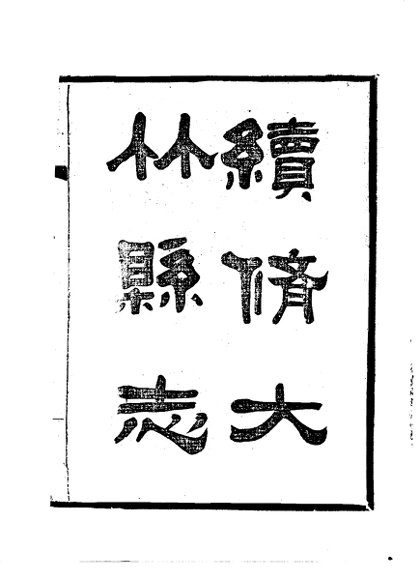 續脩大
竹縣志